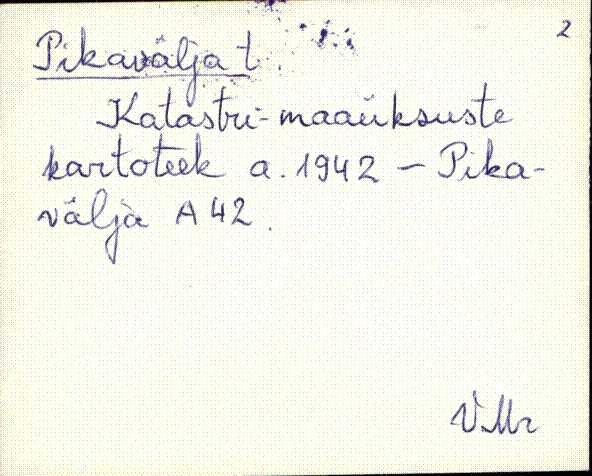 2
Pikavälja t.
Katastri-maaüksuste
kartoteek a. 1942 - Pika-
välja A 42.
V.Mr